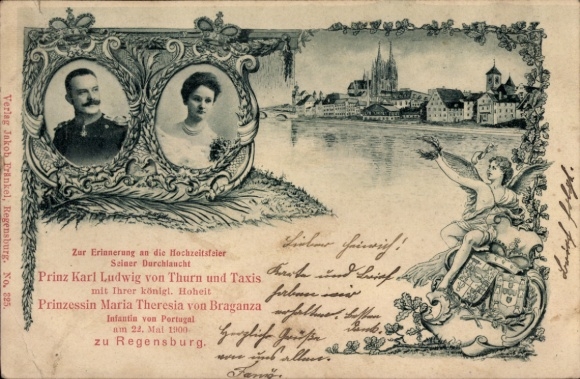 Verlag Jakob Fränkel, Regensburg. No. 225.
Zur Erinnerung an die Hochzeitsfeier
Seiner Durchlaucht
Prinz Karl Ludwig von Thurn und Taxis
mit Ihrer königl. Hoheit
Prinzessin Maria Theresia von Braganza
Infantin von Portugal
am 22. Mai 1900
zu Regensburg.
Lieber Heinrich!
Karte und Brief
haben wir
erhalten. besten
Dank.
Herzliche Grüße
von uns allen.
Franz.
Brief folgt.